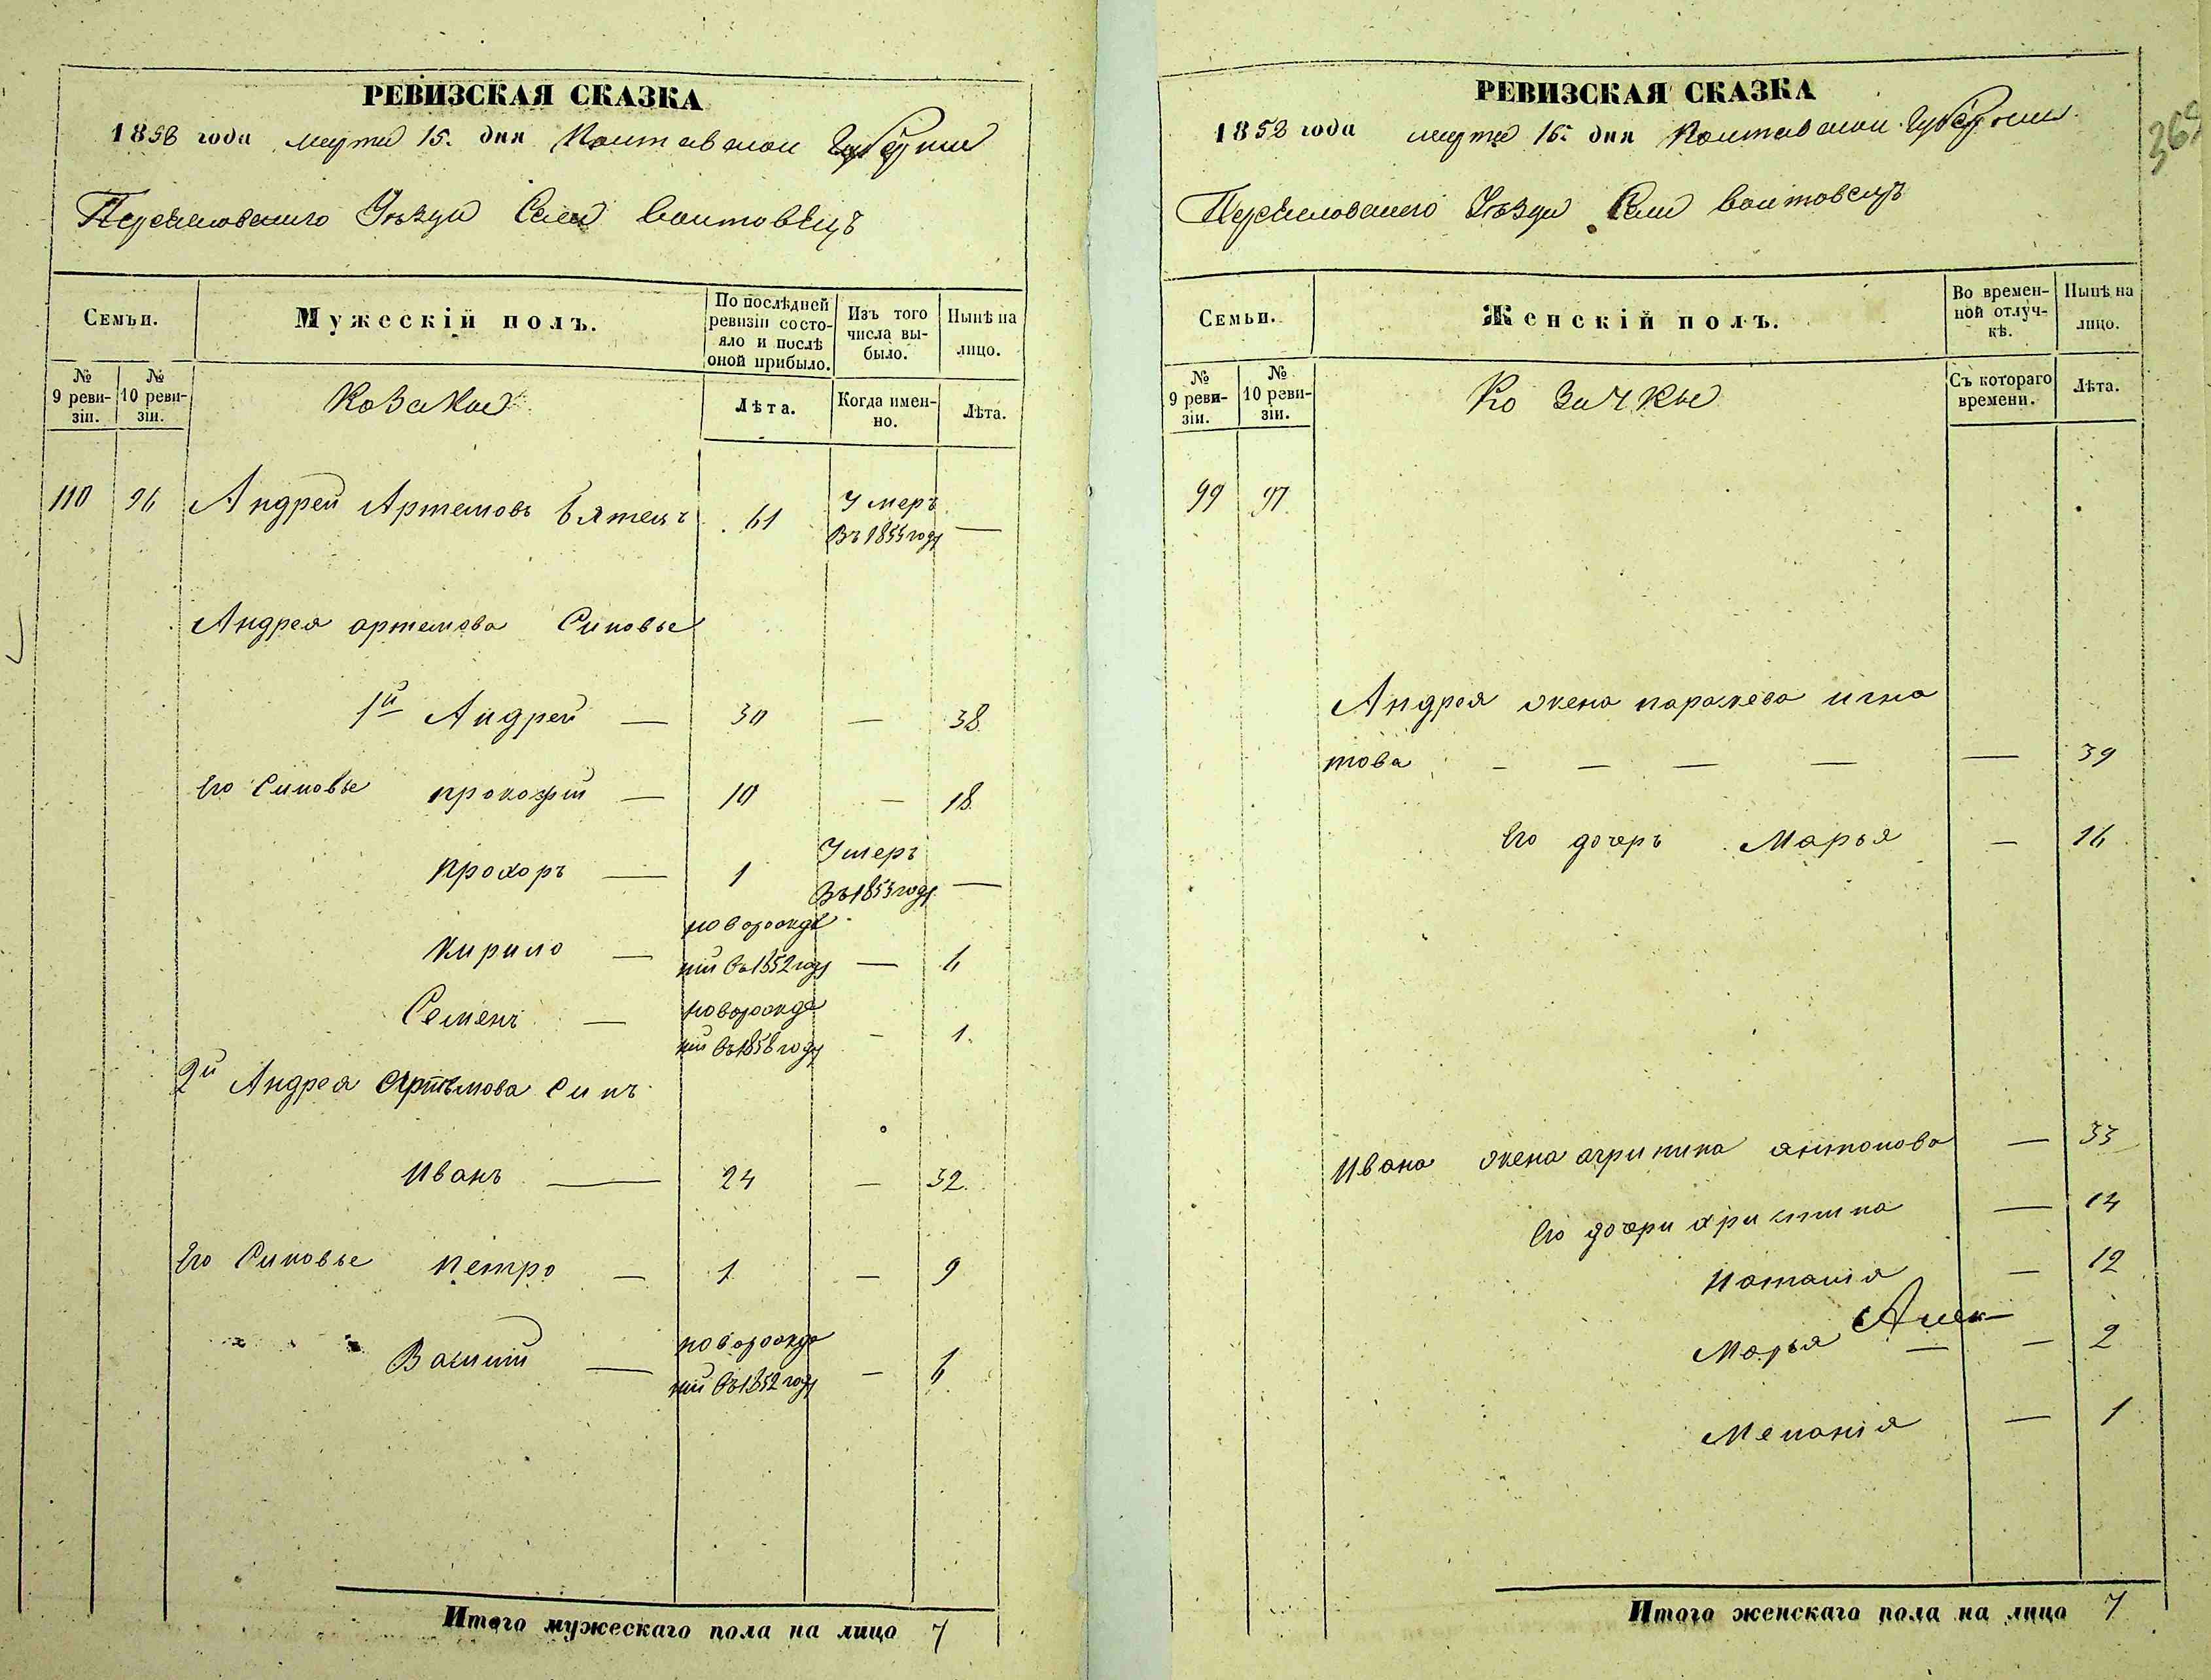 РЕВИЗСКАЯ СКАЗКА
1858 года марта 15. дня Полтавской Губернии
Переяславского Уезда Села Войтовецъ
Семьи.
Мужескій полъ.
По послѣдней ревизіи состояло и послѣ оной прибыло.
Изъ того числа выбыло.
Нынѣ на лицо.
№ 9 ревизіи.
№ 10 ревизіи.
Козаков
Лѣта.
Когда именно.
Лѣта.
110 96 Андрей Артемовъ Вятецъ 61 Умеръ
Въ 1855 году —
Андрея артемова Синовье
1й Андрей — 30 — 38
Его Синовье прокофій — 10 — 18
Прохоръ — 1 Умеръ
Въ 1853 году —
новорожде
Кирило — ній въ 1852 году — 6
новорожде
Семенъ — ній въ 1858 году — 1.
2й Андрея Артѣмова синъ
Иванъ — 24 — 32.
Его Синовье Петро — 1 — 9
новорожде
Василій — ній въ 1852 году — 6
Итого мужескаго пола на лицо 7
РЕВИЗСКАЯ СКАЗКА
1858 года марта 15. дня Полтавской Губернии.
Переяславского Уезда Села Войтовецъ
369
Семьи.
Женскій полъ.
Во временной отлучкѣ.
Нынѣ на лицо.
№ 9 ревизіи.
№ 10 ревизіи.
Козачкы
Съ котораго времени.
Лѣта.
99 97
Андрея жена параскева игна
това — — — — — 39
Его дочеръ Марья — 16
Ивана жена агрипина антонова — 33
Его дочери христина — 14
Наталія — 12
Марья — — 2
Меланія — 1
Итого женскаго пола на лицо 7